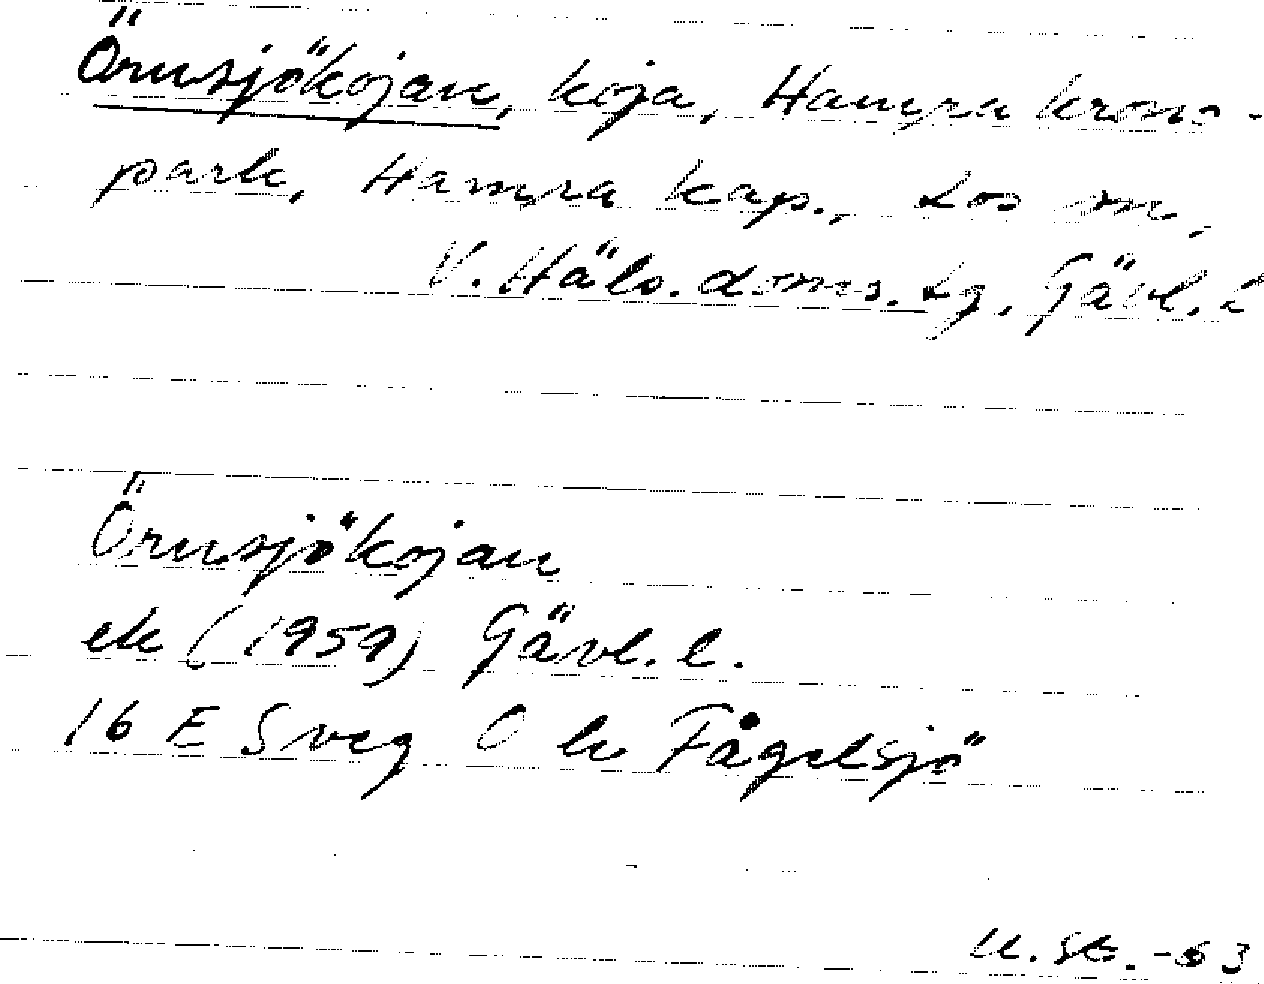 Örnsjökojan, koja, Hamra krono-
park, Hamra kap., Los sn,
V. Häls. doms. tg, Gävl. l
Örnsjökojan
ek (1959) Gävl. l.
16 E Sveg O bl Fågelsjö
U. St. -63